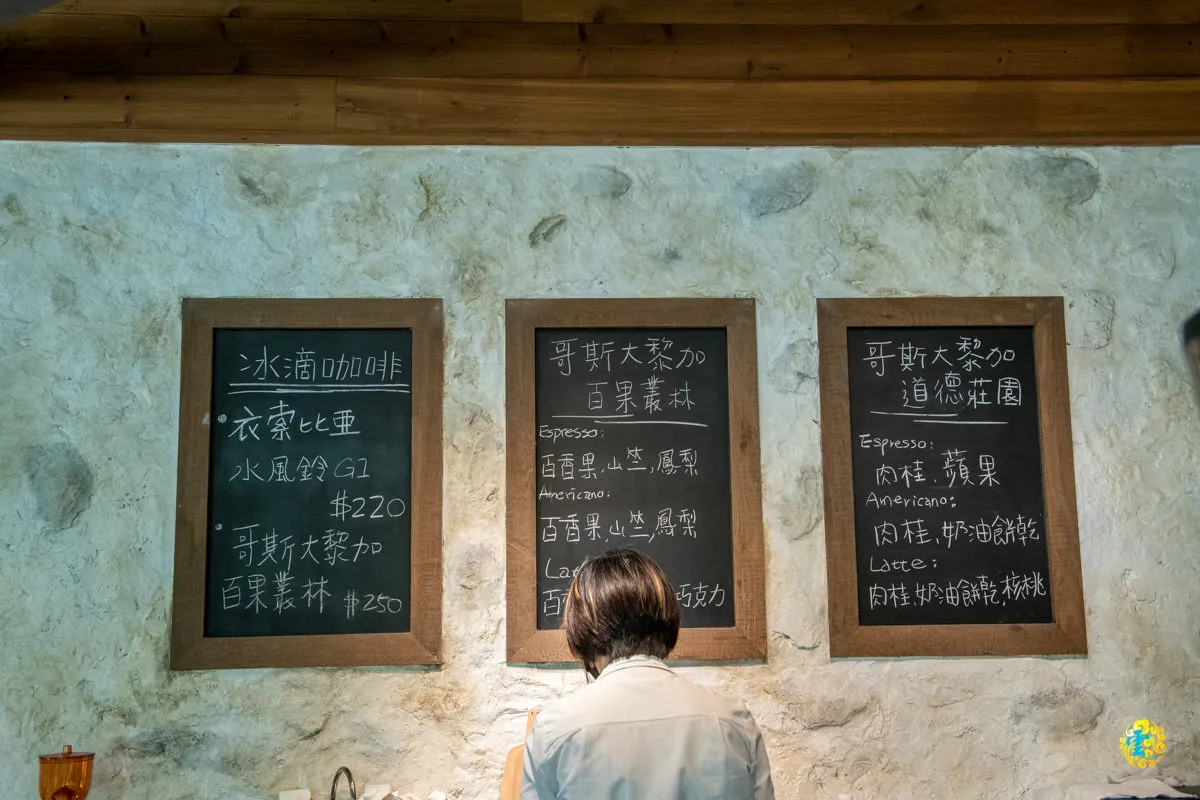 冰滴咖啡
衣索比亞
水風鈴G1
$220
哥斯大黎加
百果叢林 $250
哥斯大黎加
百果叢林
Espresso:
百香果,山竺,鳳梨
Americano:
百香果,山竺,鳳梨
巧克力
哥斯大黎加
道德莊園
Espresso:
肉桂,蘋果
Americano:
肉桂,奶油餅乾
Latte:
肉桂,奶油餅乾,核桃